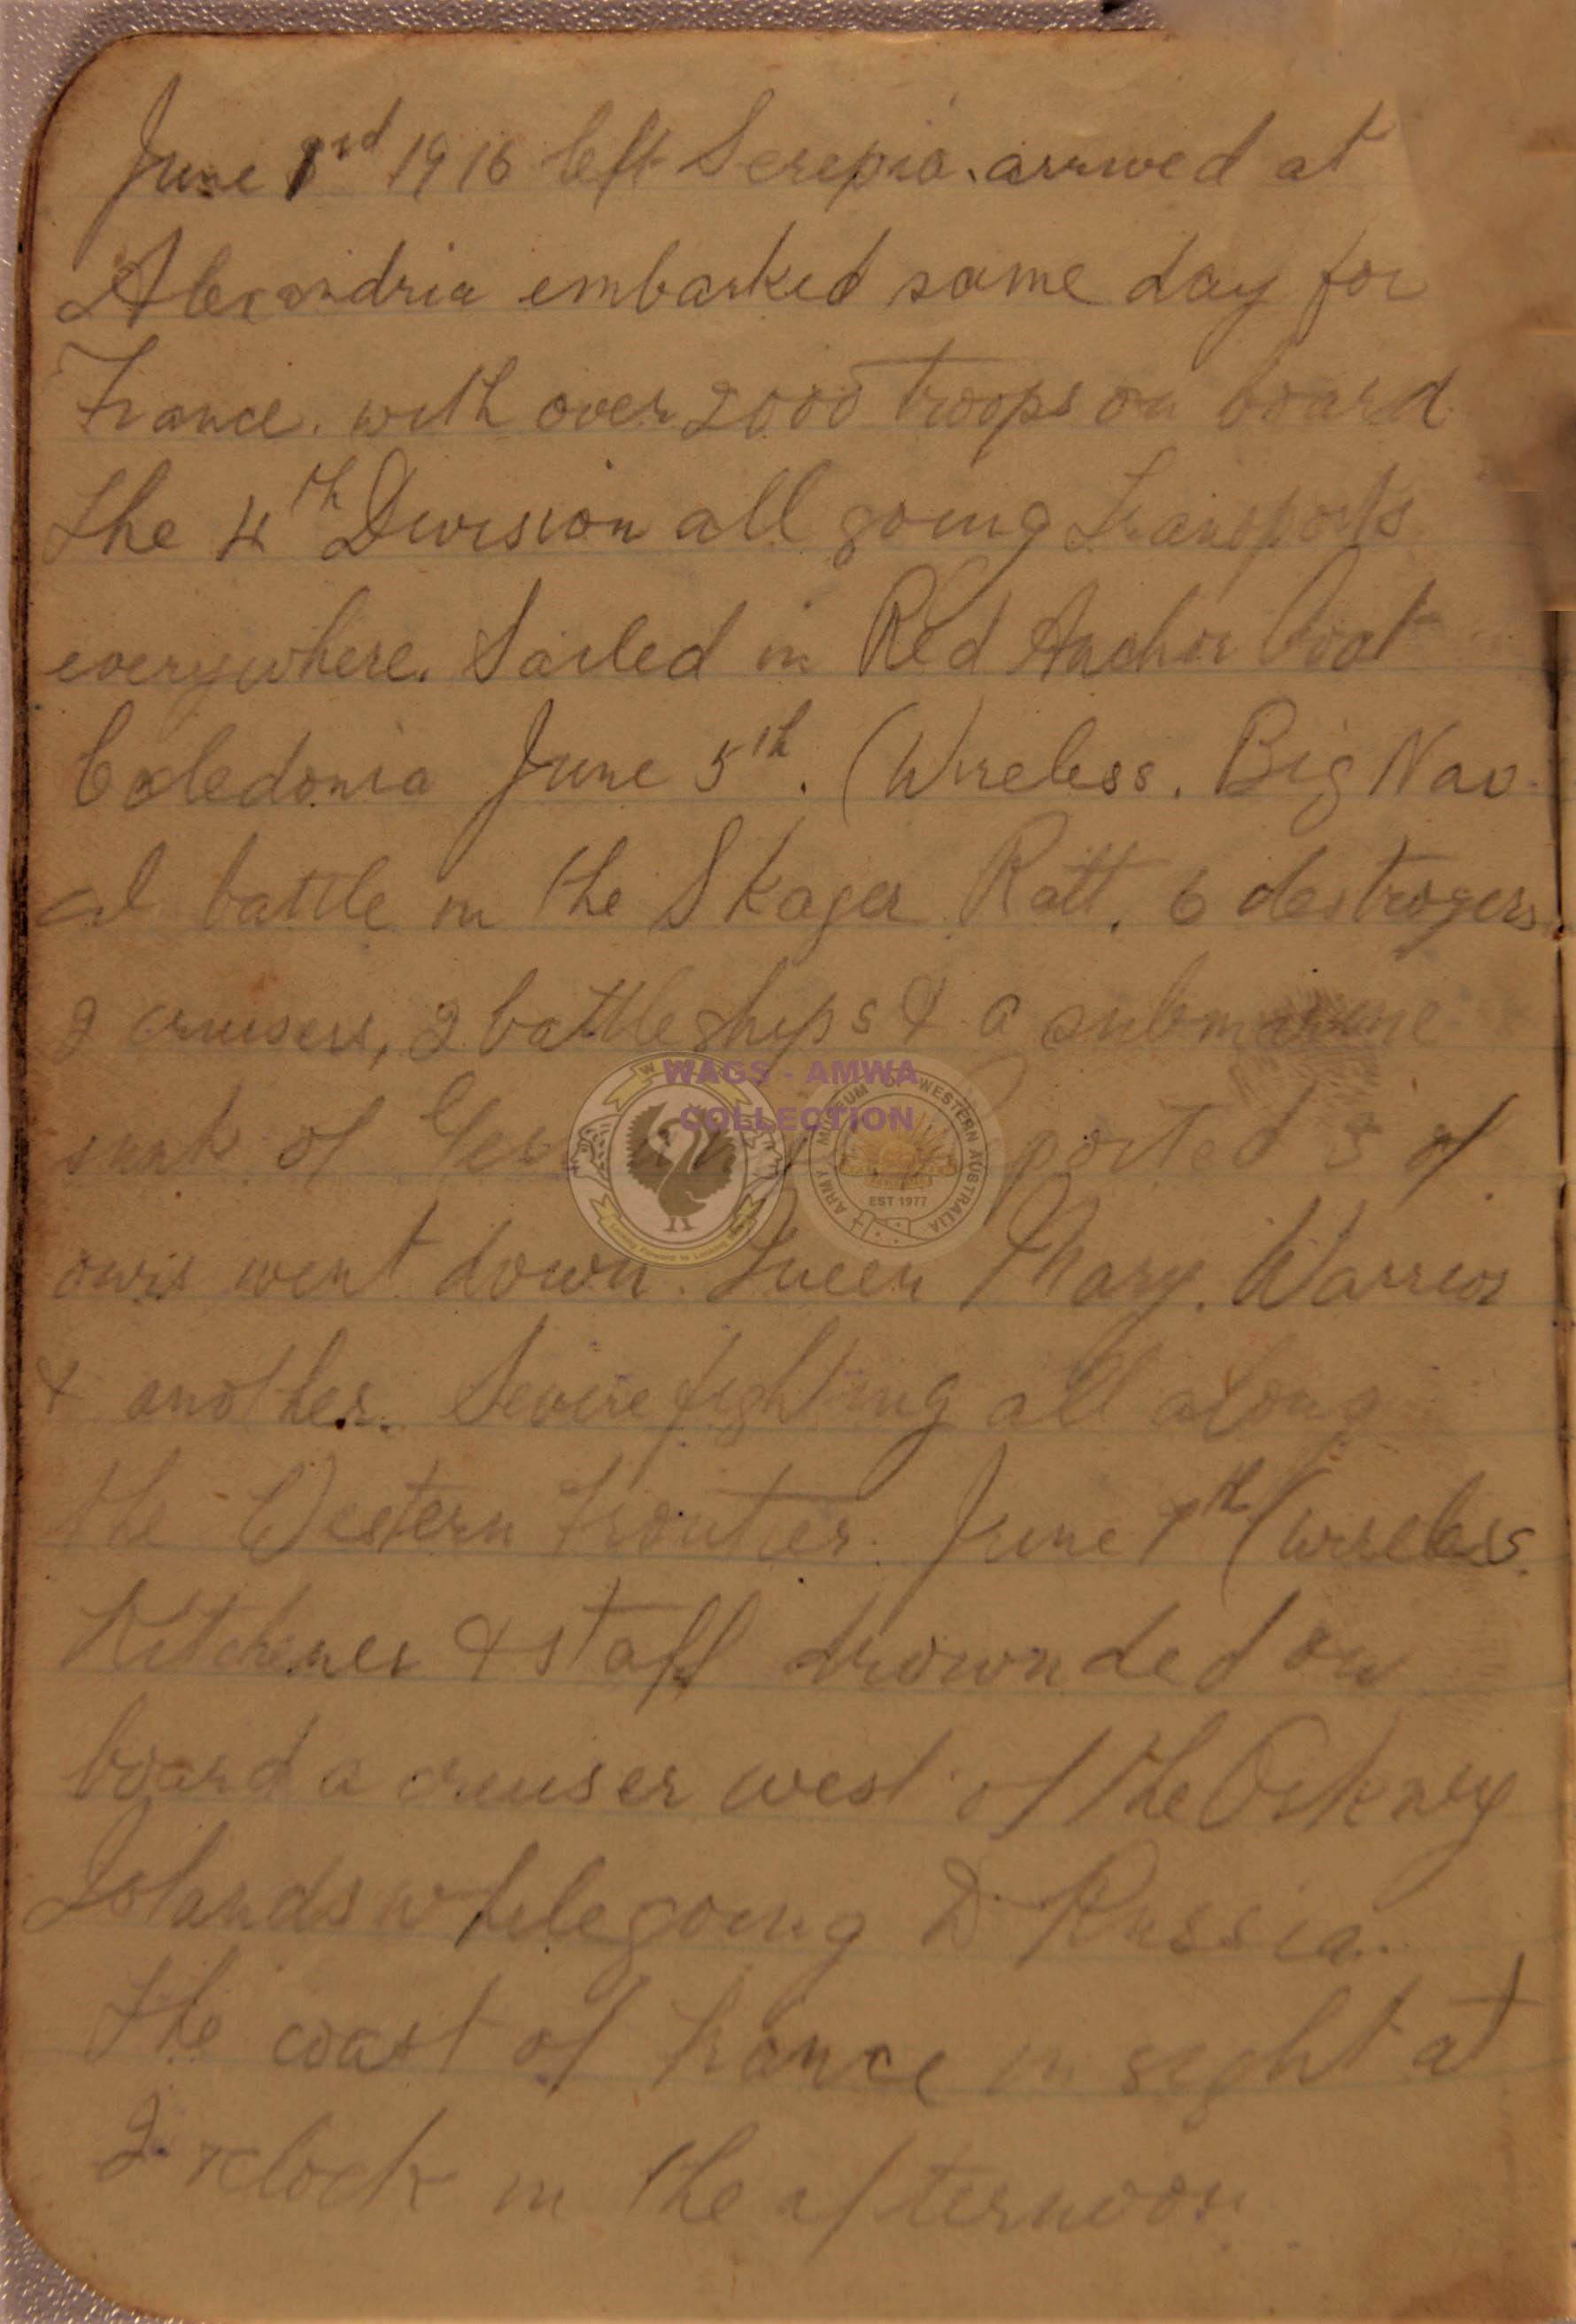 June 3rd 1916 left Serepia. arrived at
Alexandria embarked same day for
France. with over 2000 troops on board
the 4th Division all going Transports
everywhere. Sailed in Red Anchor boat
Caledonia June 5th. (Wireless. Big Nav-
al battle in the Skager Ratt. 6 destroyers
2 cruisers, 2 battleships & a submarine
sunk of ported 3 of
ours went down. Queen Mary. Warrior
& another. Severe fighting all along
the Western Frontier. June 7th (wireless.
Kitchener & staff drownded on
board a cruiser west of the Orkney
Islands while going to Russia.
the coast of France in sight at
2 oclock in the afternoon
WAGS - AMWA
COLLECTION
ARMY MUSEUM OF WESTERN AUSTRALIA
EST 1977